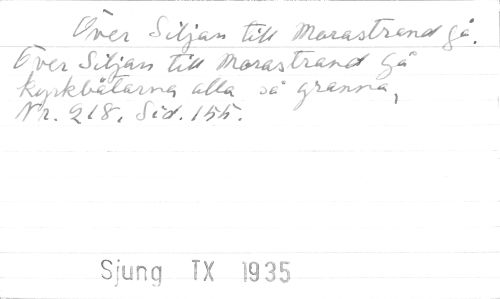 Över Siljan till Morastrand gå.
Över Siljan till Morastrand gå
kyrkbåtarna alla så granna,
Nr. 218. Sid. 155.
Sjung TX 1935